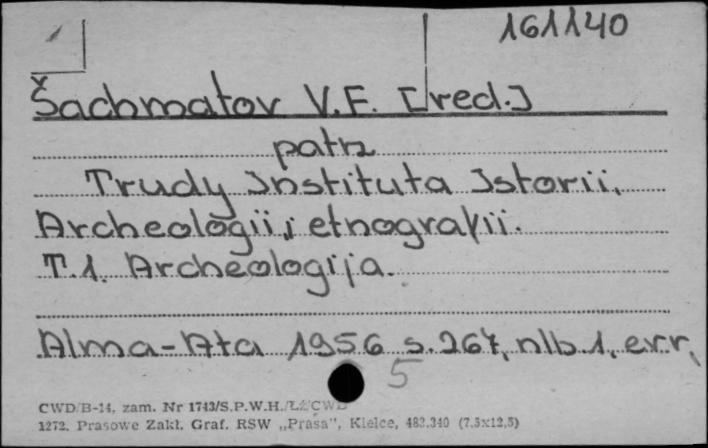 161140
Šachmatov V.F. [red.]
patrz
Trudy Instituta Istorii,
Archeologii i etnografii.
T.1. Archeologija.
Alma-Ata 1956 s.267, nlb.1, err,
5
CWD/B-14, zam. Nr 1743/S.P.W.H./ŁZ/CWD
1272. Prasowe Zakł. Graf. RSW „Prasa", Kielce, 482.340 (7,5x12,5)